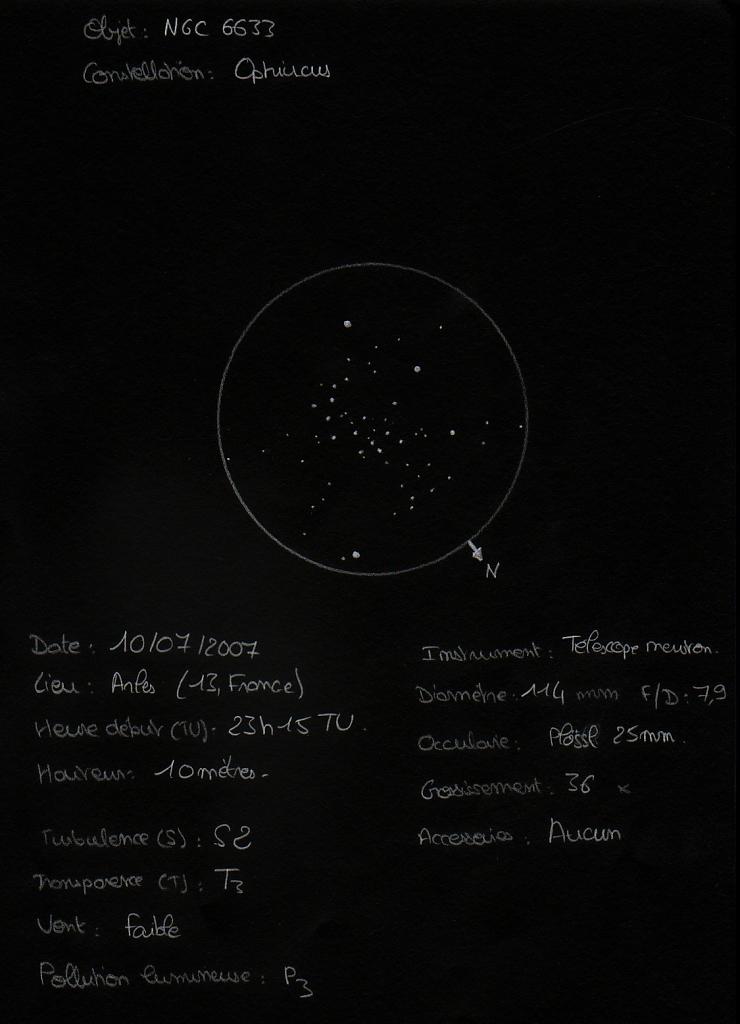 Objet : NGC 6633
Constellation : Ophiucus
N
Date : 10/07/2007
Lieu : Arles (13, France)
Heure début (TU) : 23h15 TU.
Hauteur : 10 mètres.
Turbulence (S) : S2
Transparence (T) : T3
Vent : faible
Pollution lumineuse : P3
Instrument : Télescope newton.
Diamètre : 114 mm F/D : 7,9
Occulaire : Plössl 25mm.
Grossissement : 36 x
Accessoires : Aucun